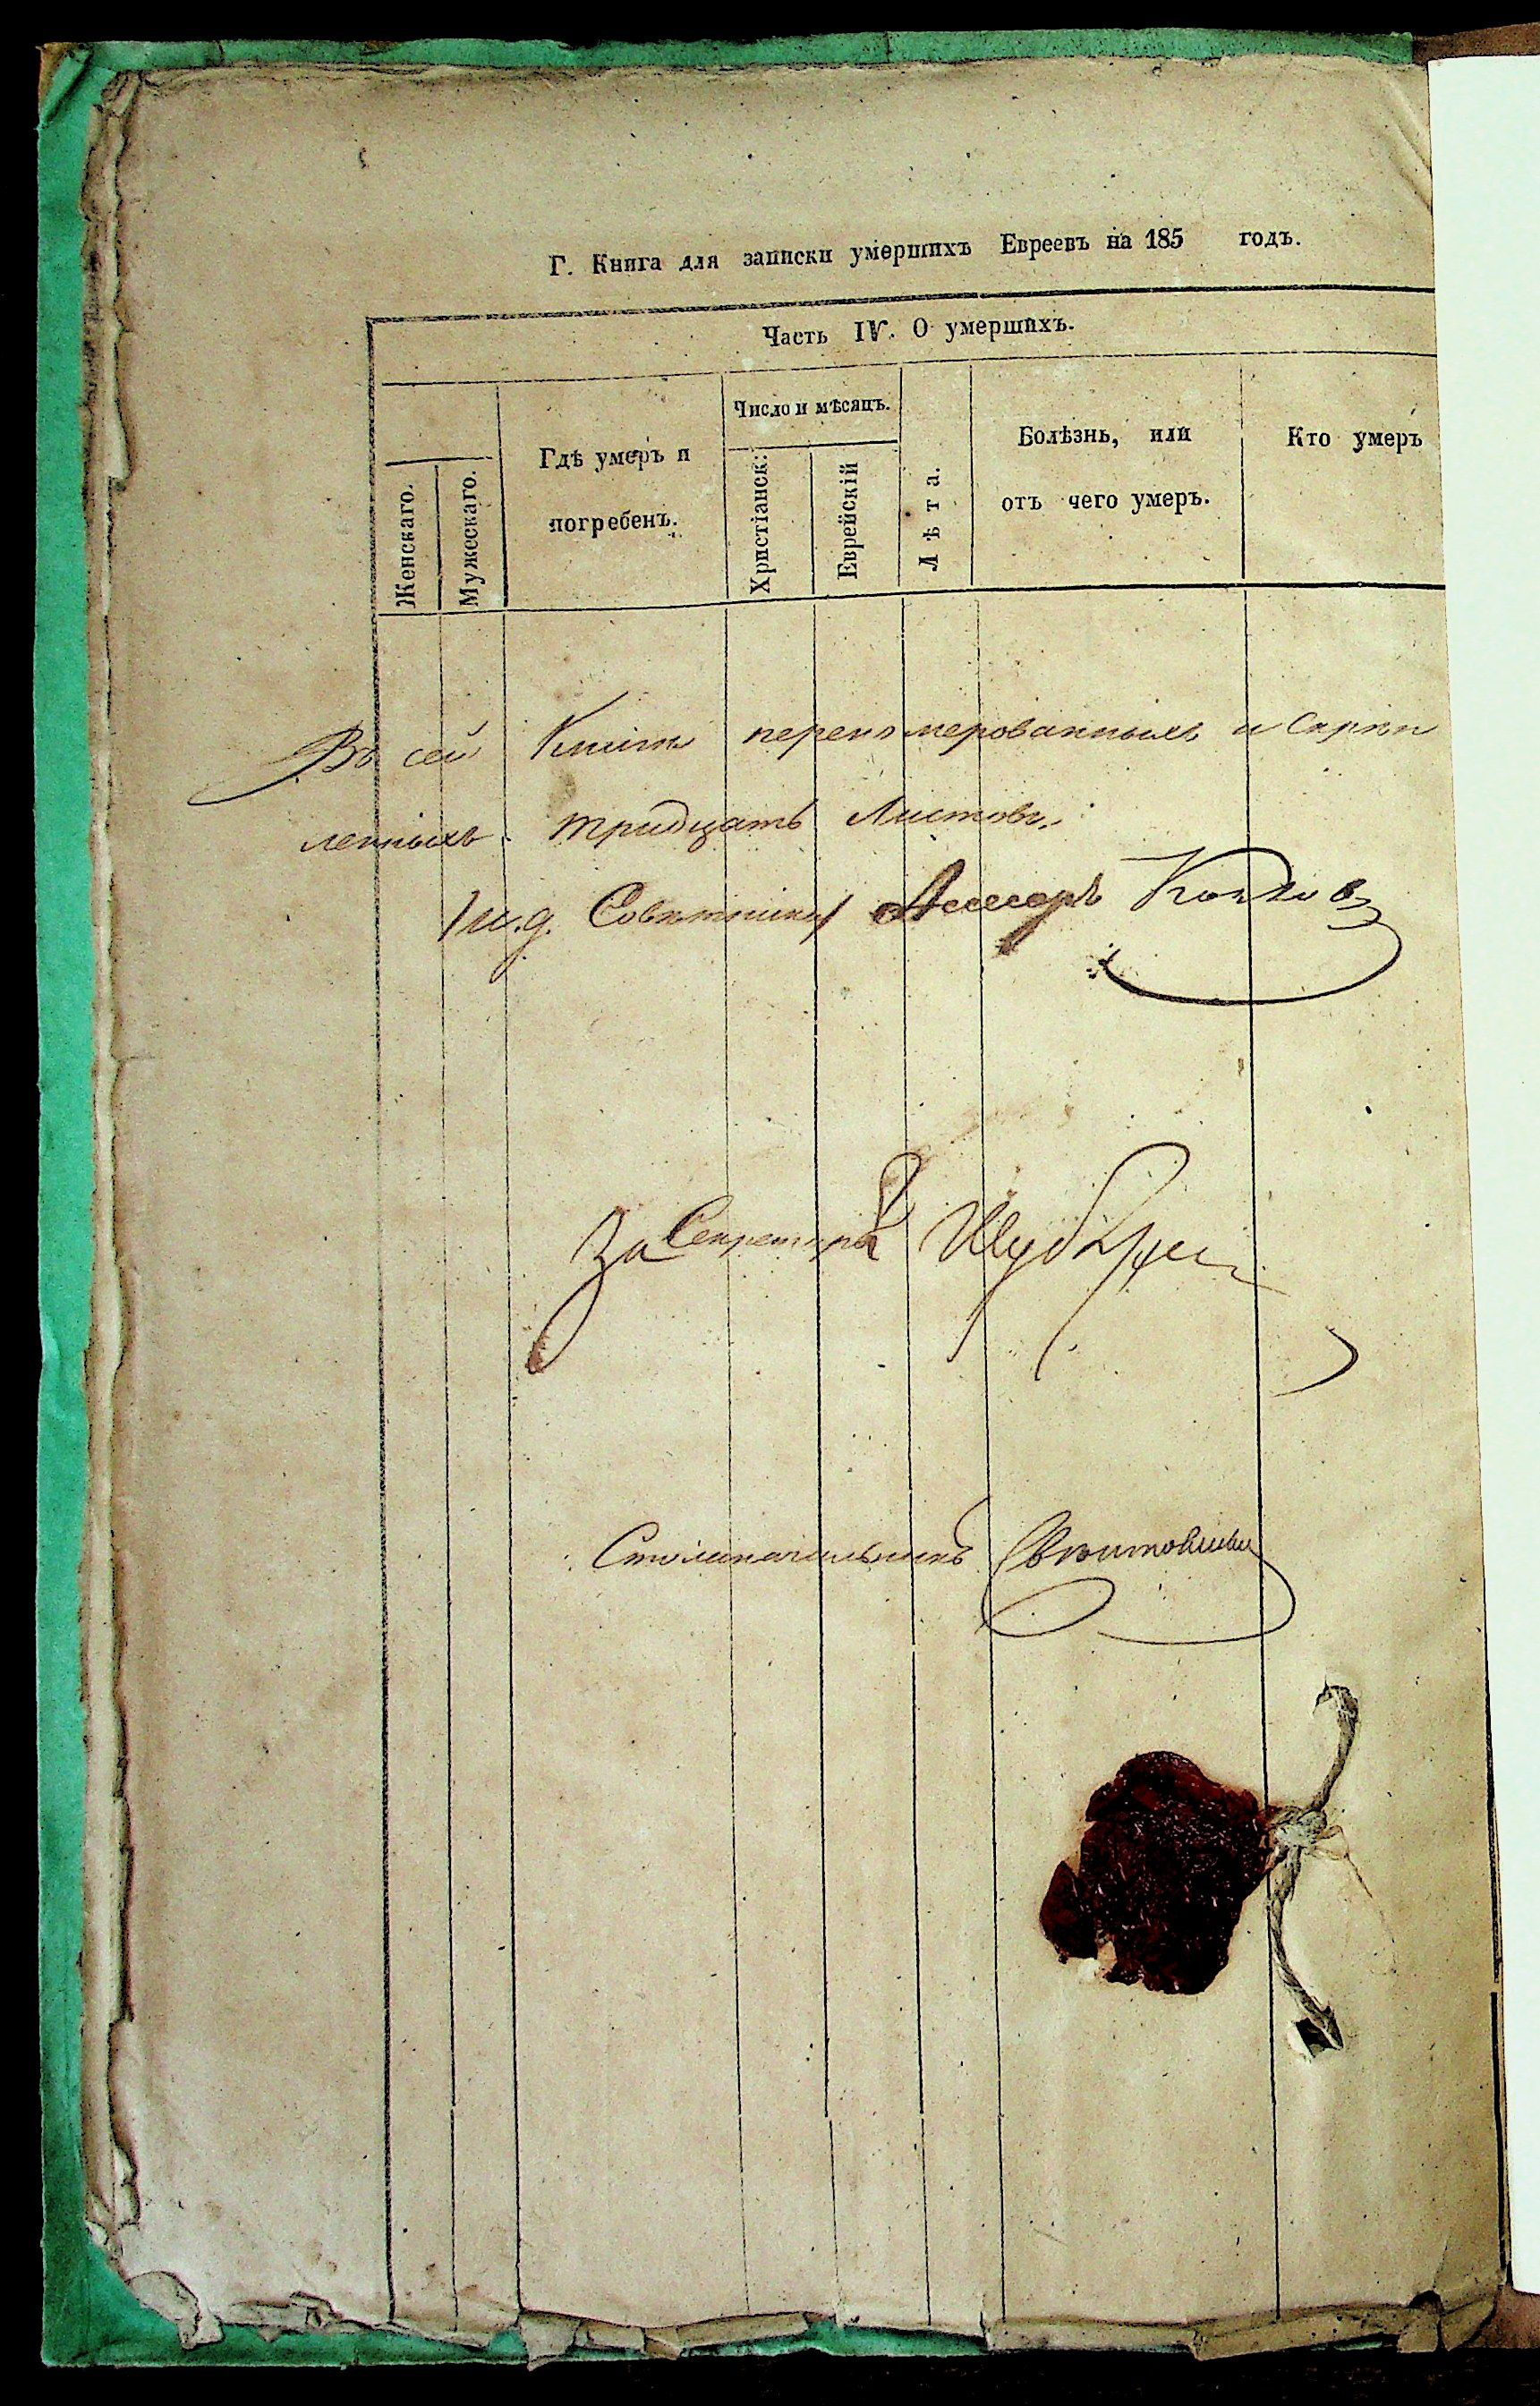 Г. Книга для записки умершихъ Евреевъ на 185 годъ.
Часть IV. О умершихъ.
Женскаго.
Мужескаго.
Гдѣ умеръ и
погребенъ.
Число и мѣсяцъ.
Христіанск:
Еврейскій
Лѣта.
Болѣзнь, или
отъ чего умеръ.
Кто умеръ
Въ сей Книгѣ перенумерованныхъ и скрѣп
ленныхъ тридцать Листовъ.
И.д. Совѣтника Ассесоръ
За Секретаря
Столоначальникъ